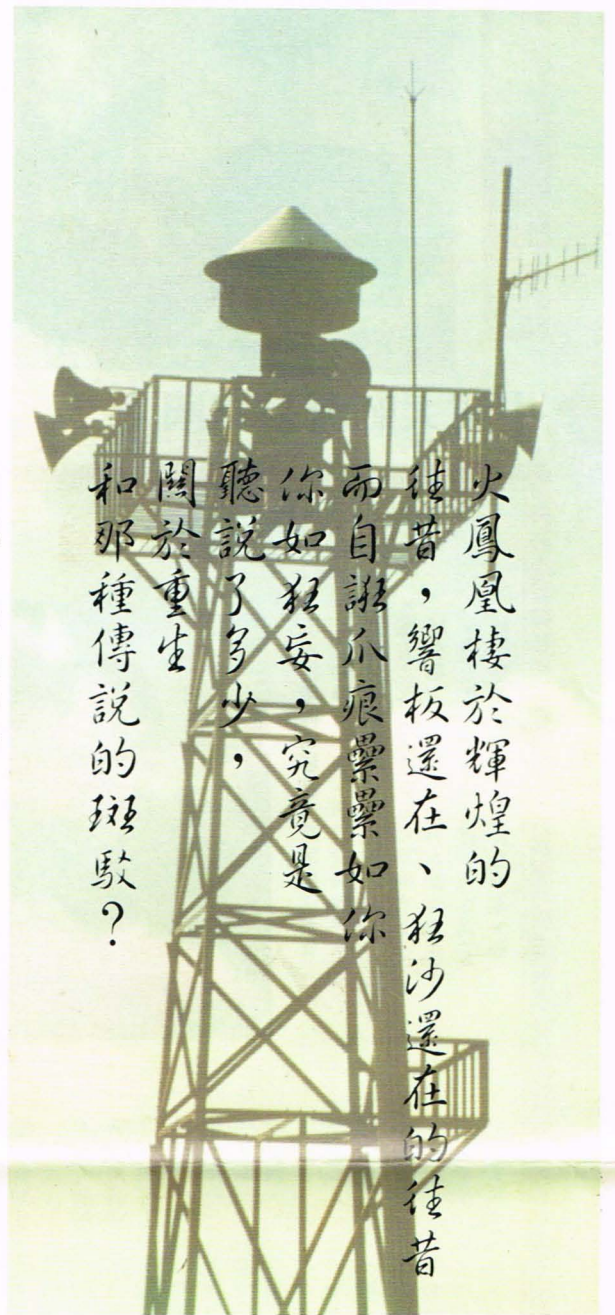 火鳳凰棲於輝煌的
往昔，響板還在、狂沙還在的往昔
而自誑爪痕纍纍如你
你如狂妄，究竟是
聽說了多少，
關於重生
和那種傳說的斑駁？